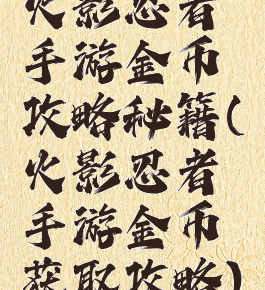 火影忍者
手游金币
攻略秘籍(
火影忍者
手游金币
获取攻略)